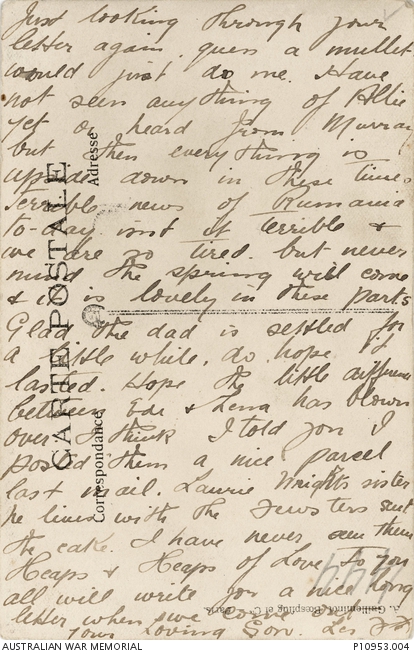 Just looking through your
letter again guess a mullet
would just do me. Have
not seen anything of Allie
yet or heard from Murray
but then everything is
upside down in these times
terrible news of Rumania
to-day isnt it terrible &
we are so tired. but never
mind the spring will come
& it is lovely in these parts
Glad the dad is settled for
a little while. do hope it
lasted. Hope the little difference
between Ede & has blown
over. I think I told you I
posted them a nice parcel
last mail. Laurie Wrights sister
he lives with the sent
the cake. I have never seen them
Heaps & Heaps of Love to you
all will write you a nice long
letter when we come out
Your Loving Son. Les
CARTE POSTALE
Correspondance
Adresse
A. Guilleminot, Bœspflug et Cie Paris
AUSTRALIAN WAR MEMORIAL
P10953.004